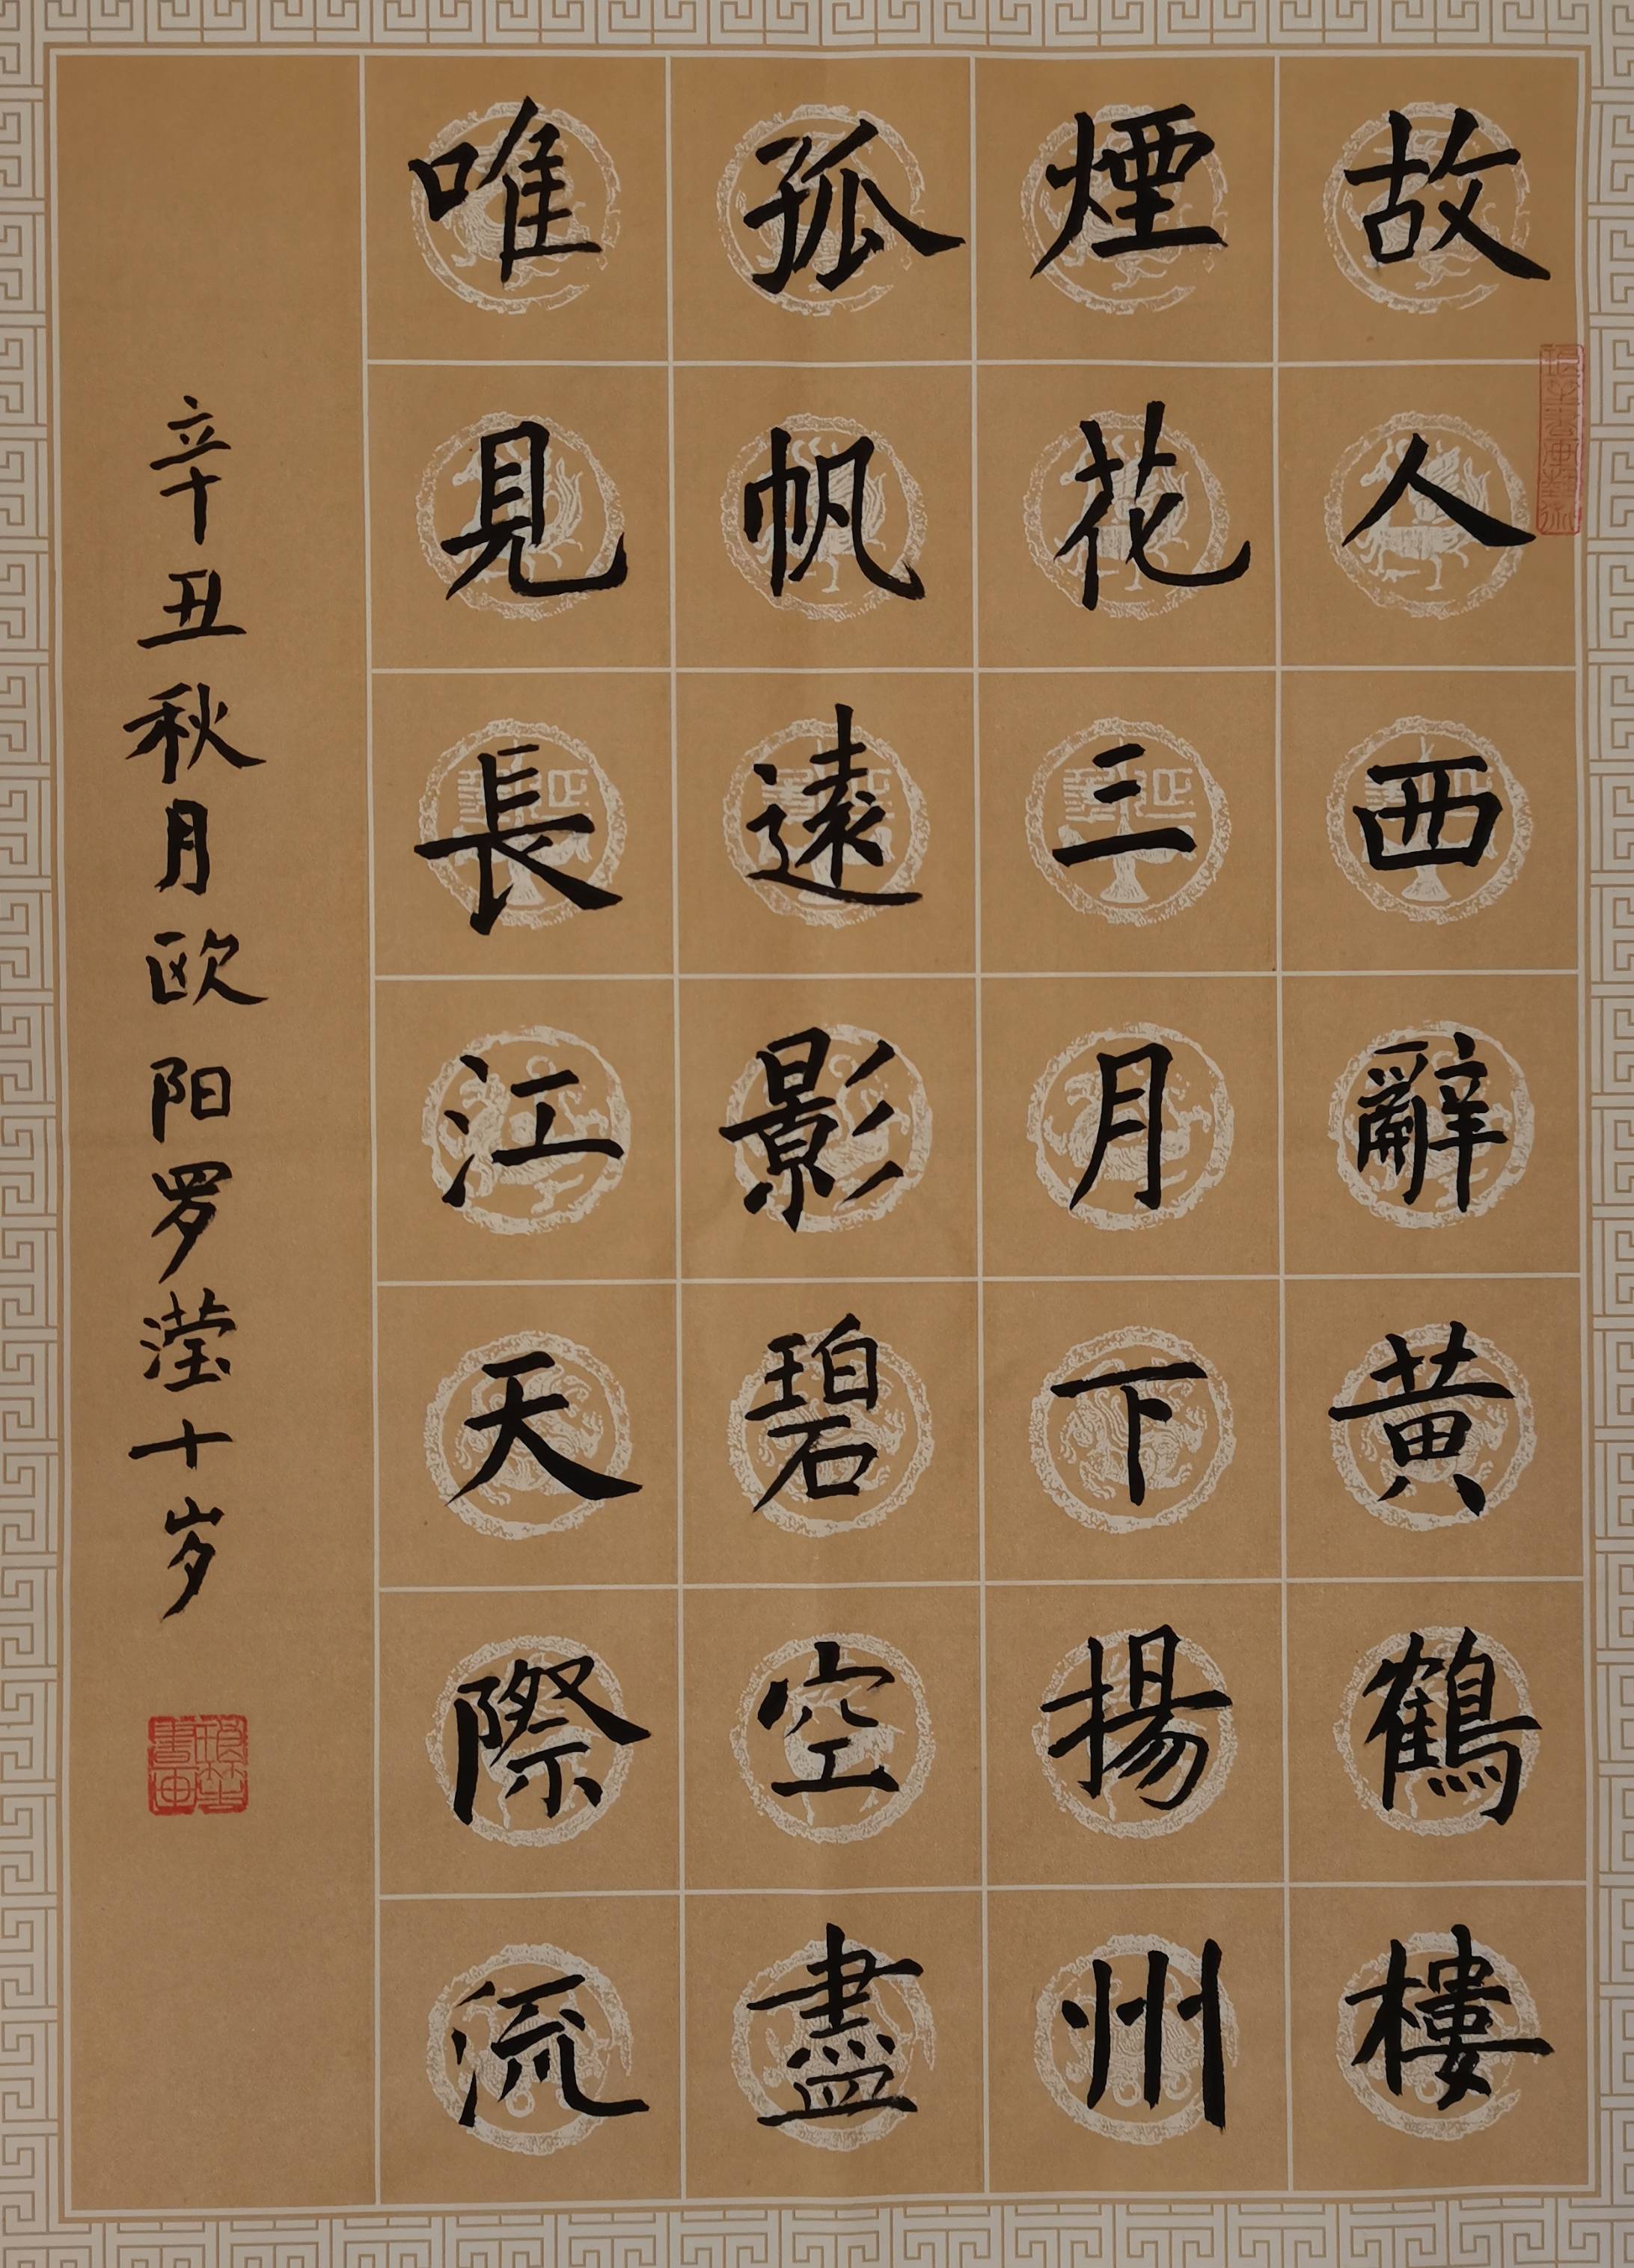 故人西辭黃鶴樓
煙花三月下揚州
孤帆遠影碧空盡
唯見長江天際流
辛丑秋月欧阳罗滢十岁